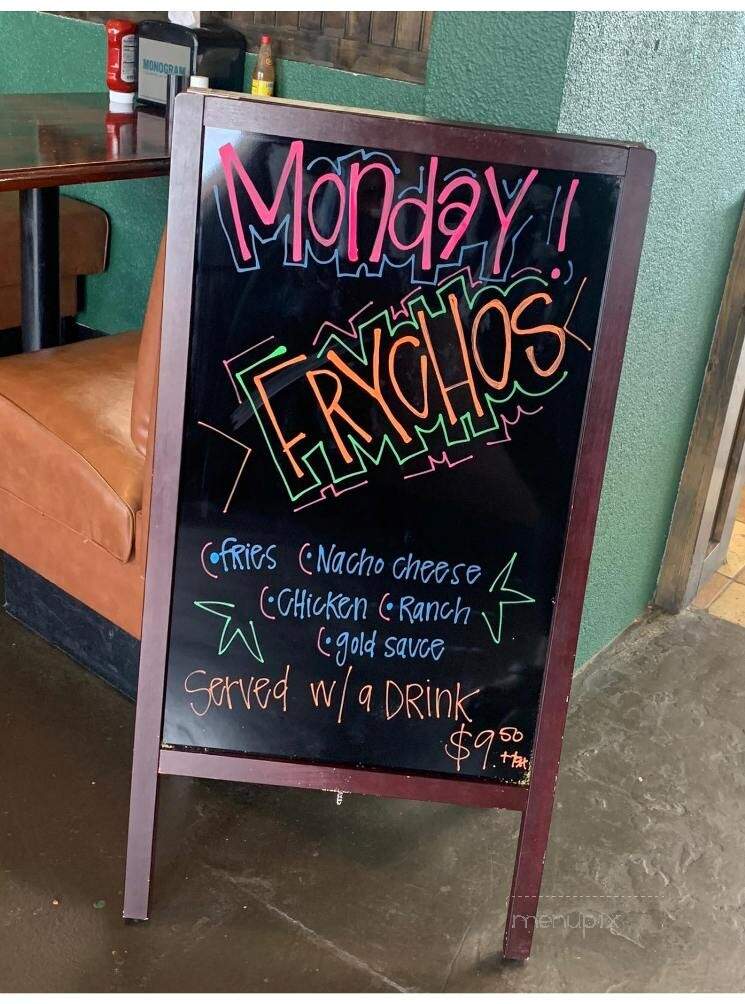 MONOGRAM
Monday!
FRYCHOS
• fries • Nacho cheese
• CHicken • Ranch
• gold sauce
Served w/ a DRINK
$9.50
+tax
menupix